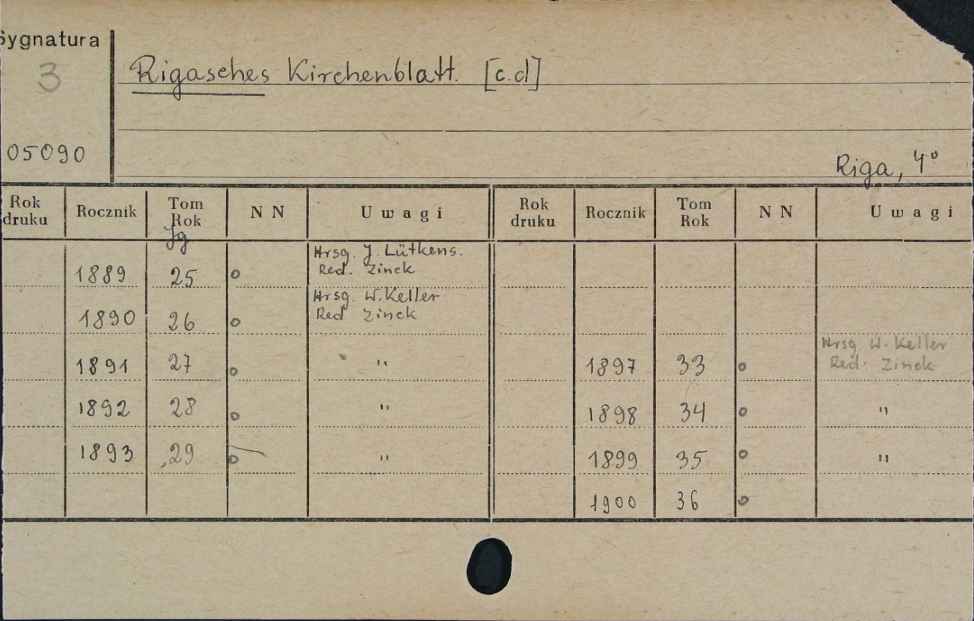 Sygnatura
3
05090
Rigasches Kirchenblatt. [c.d]
Riga, 4°
Rok druku Rocznik Tom Rok NN Uwagi Rok druku Rocznik Tom Rok NN Uwagi
Jg
Hrsg. J. Lütkens.
1889 25 o Red. Zinck
Hrsg. W. Keller
1890 26 o Red Zinck
Hrsg W. Keller
1891 27 o " 1897 33 o Red. Zinck
1892 28 o " 1898 34 o "
1893 29 o " 1899 35 o "
1900 36 o